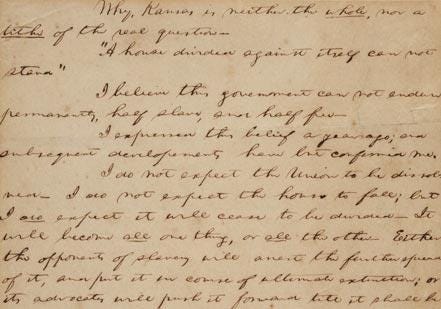 Why, Kansas is neither the whole, nor a
tithe of the real question—
"A house divided against itself can not
stand"
I believe this government can not endure
permanently, half slave, and half free—
I expressed this belief a year ago; and
subsequent developements have but confirmed me.
I do not expect the Union to be dissol-
ved— I do not expect the house to fall; but
I do expect it will cease to be divided— It
will become all one thing, or all the other. Either
the opponents of slavery will arrest the further spread
of it, and put it in course of ultimate extinction; or
its advocates will push it forward till it shall be